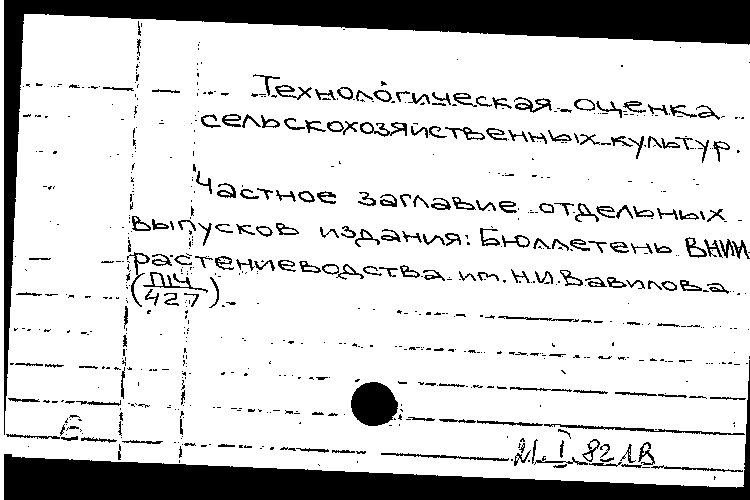 Технологическая оценка
сельскохозяйственных культур.
Частное заглавие отдельных
выпусков издания: Бюллетень ВНИИ
растениеводства им. Н.И. Вавилова
(П14/427).
Б
21.I.82